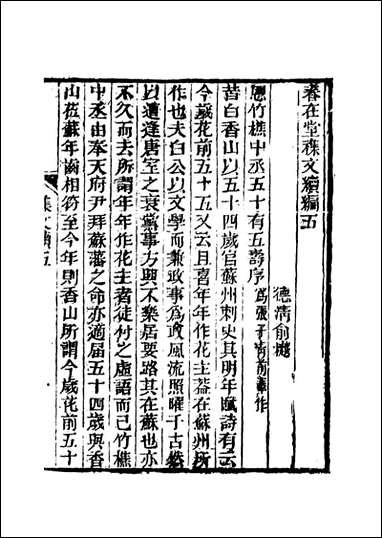 春在堂襍文續編五
德清俞樾
恩竹樵中丞五十有五壽序爲張子青前輩作
昔白香山以五十四歲官蘇州刺史其明年賦詩有云
今歲花前五十五又云且喜年年作花主蓋在蘇州所
作也夫白公以文學而兼政事爲政風流照曜千古然
以遭逢唐室之衰黨事方興不樂居要路其在蘇也亦
不久而去所謂年年作花主者徒付之虛語而已竹樵
中丞由奉天府尹拜蘇藩之命亦適屆五十四歲與香
山莅蘇年齒相符至今年則香山所謂今歲花前五十
襍文續五